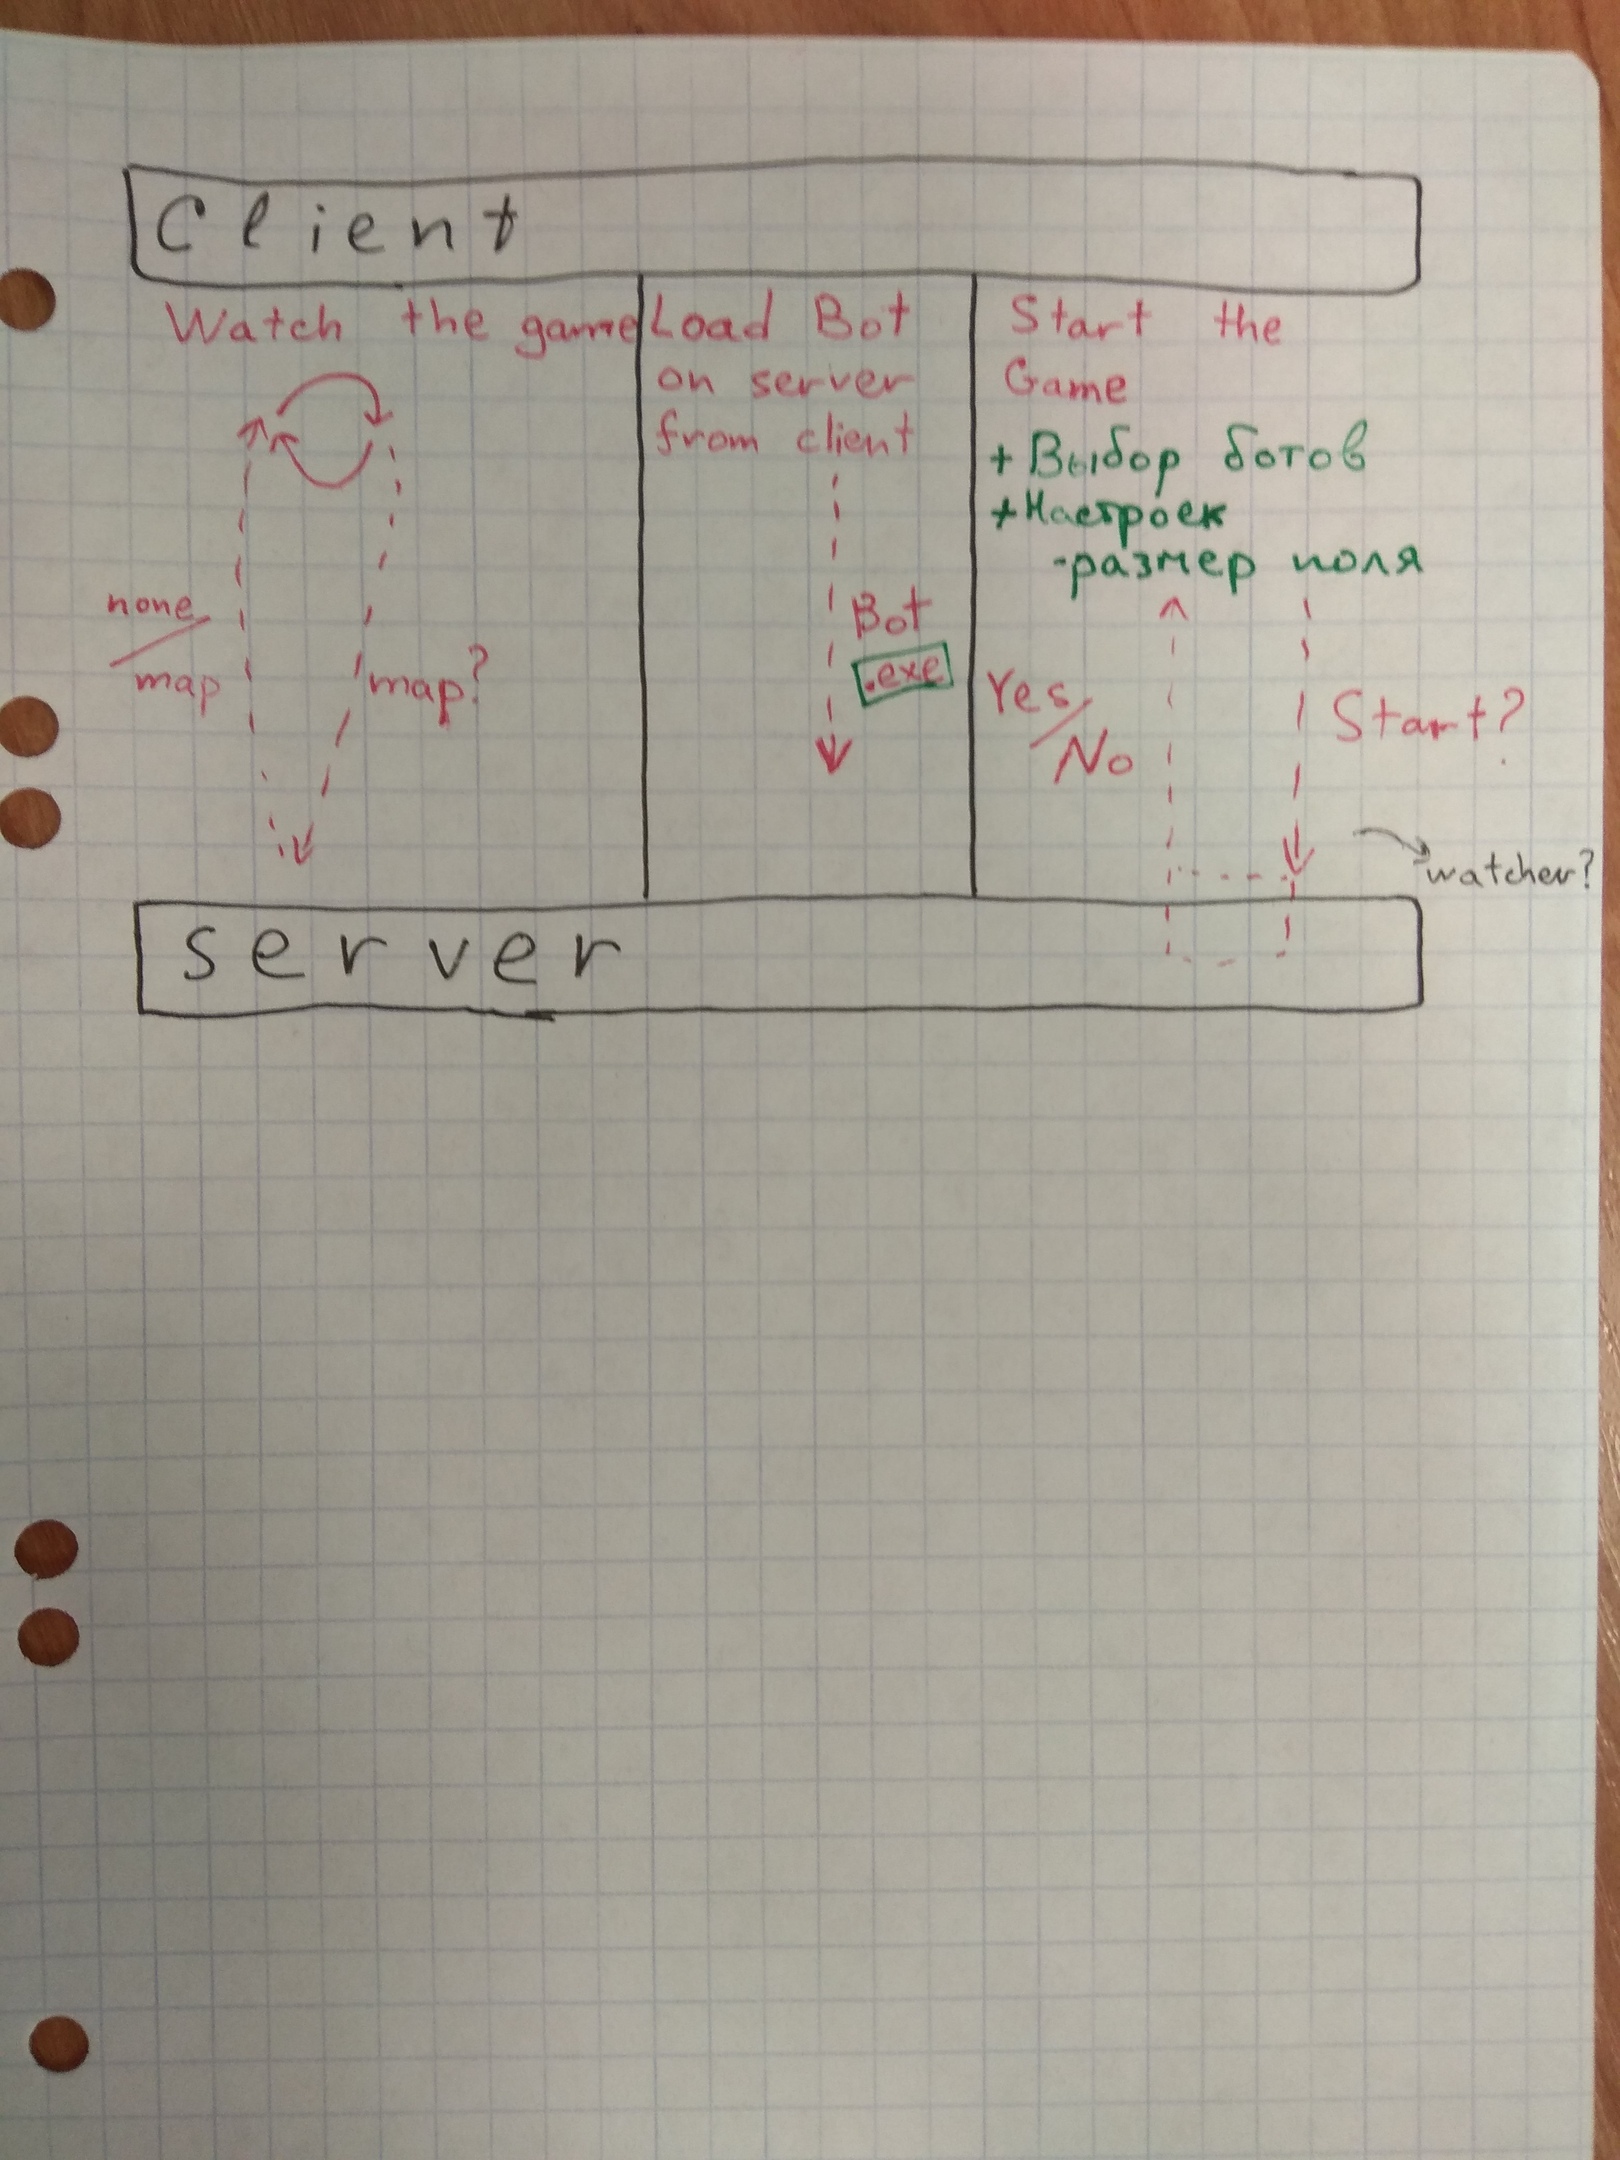 Client
Watch the game
none
/
map
map?
Load Bot
on server
from client
Bot
.exe
Start the
Game
+ Выбор ботов
+ Настроек
- размер поля
Yes
/
No
Start?
watcher?
server